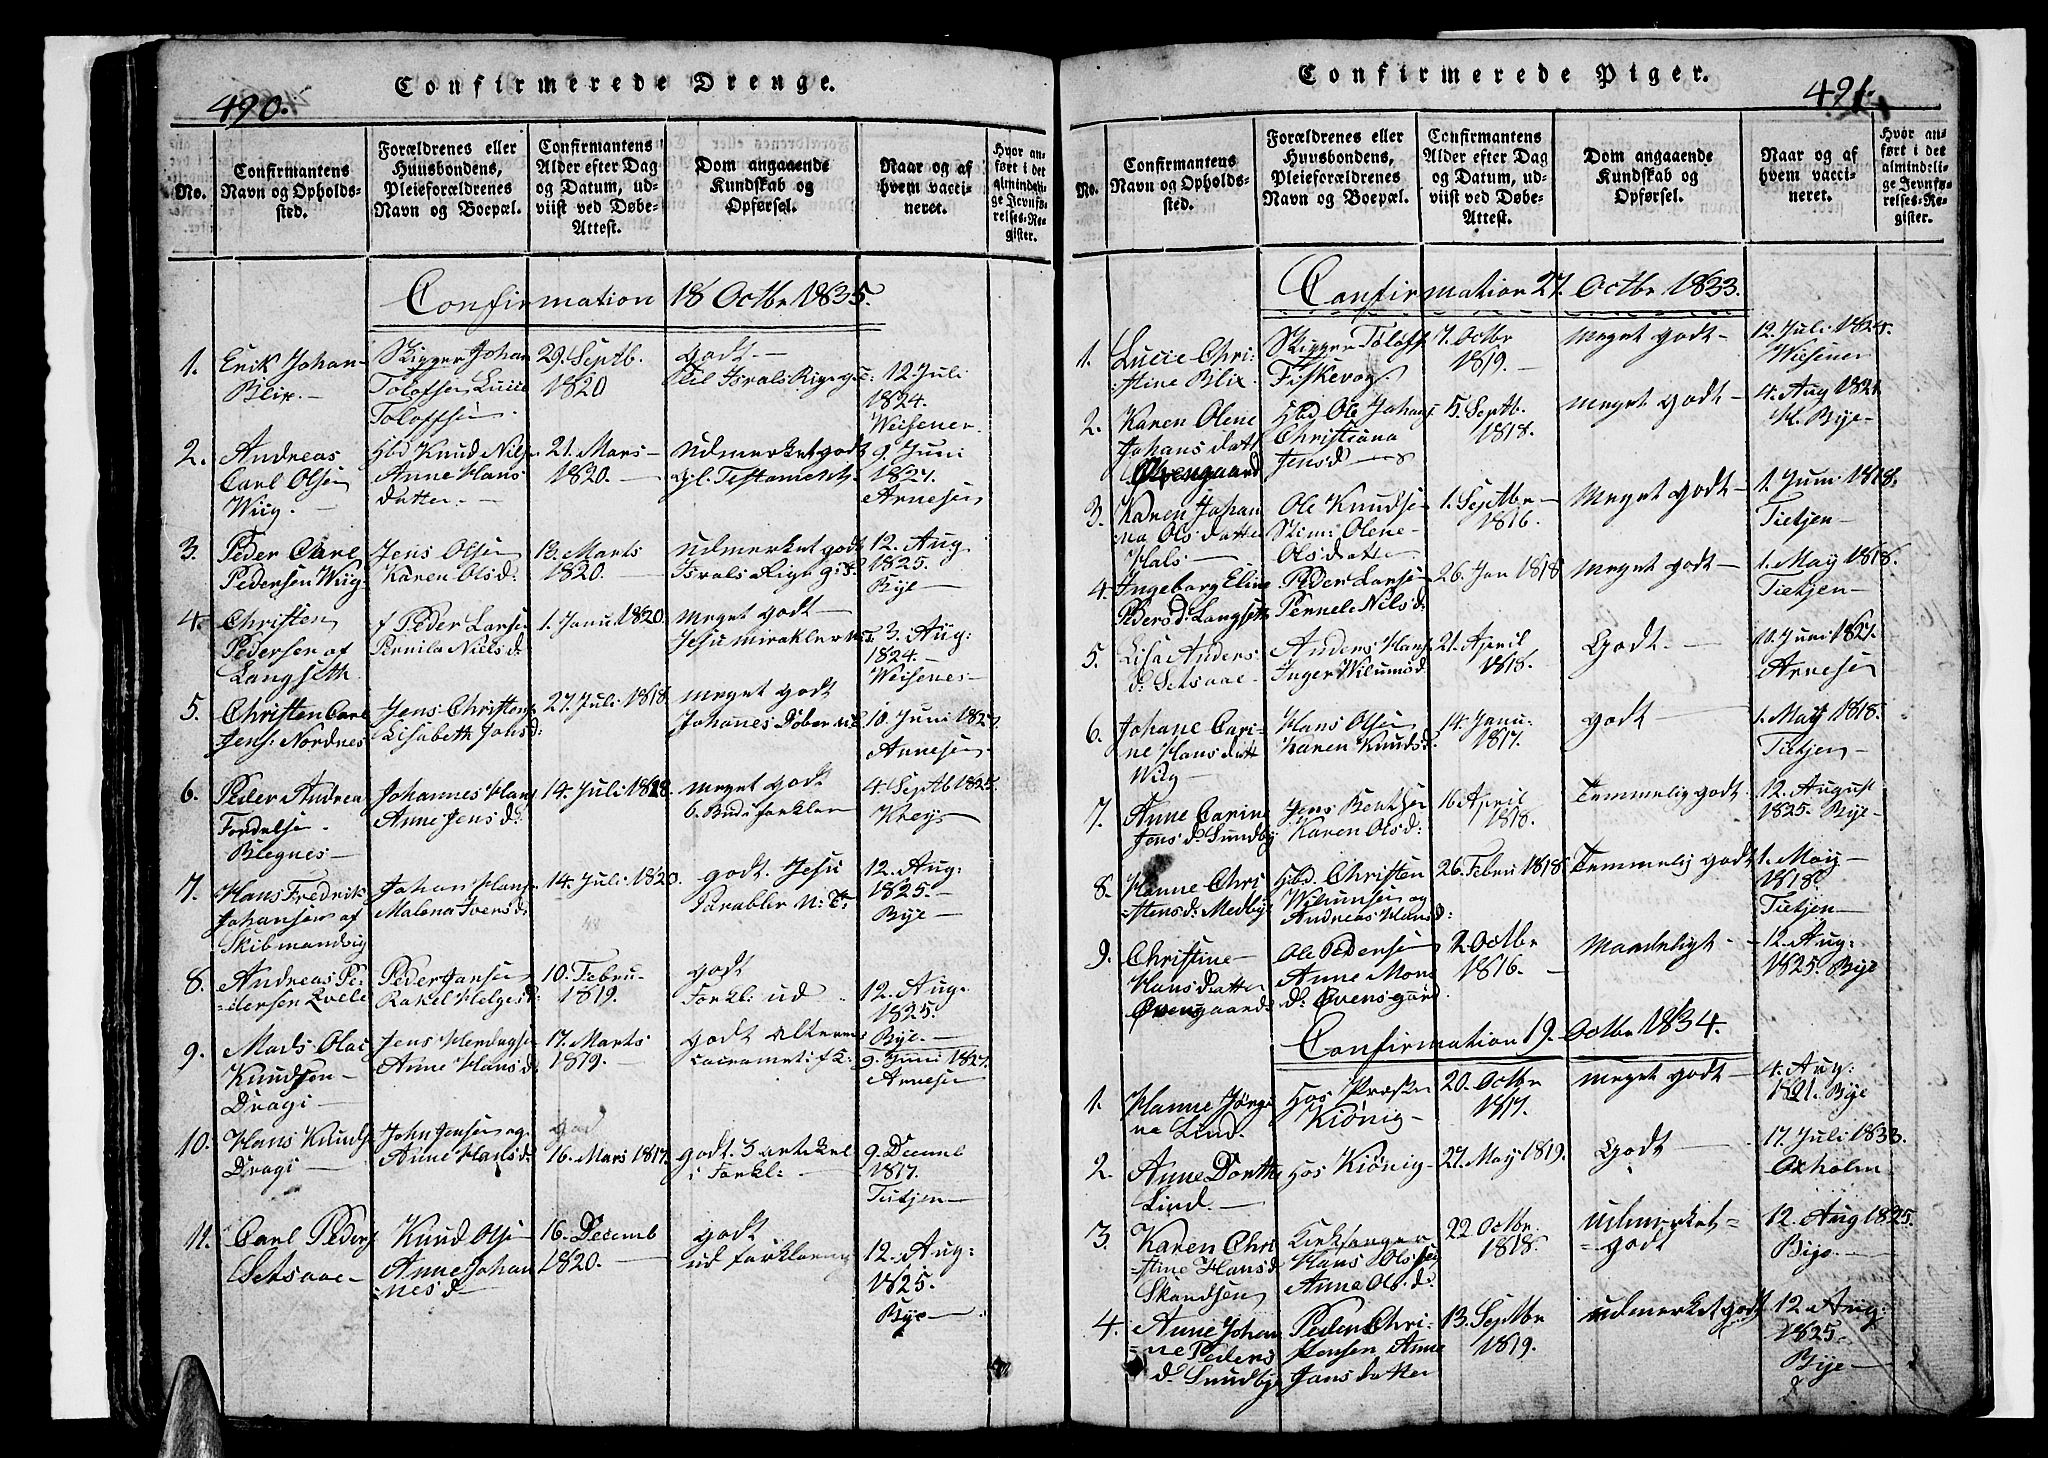 Confirmerede Drenge.
490.
No.
Confirmantens
Navn og Opholds-
sted.
Forældrenes eller
Huusbondens,
Pleieforældrenes
Navn og Boepæl.
Confirmantens
Alder efter Dag
og Datum, ud-
viist ved Døbe-
Attest.
Dom angaaende
Kundskab og
Opførsel.
Naar og af
hvem vacci-
neret.
Hvor an-
ført i det
almindeli-
ge Jevnfø-
relses-Re-
gister.
Confirmation 18 Octbr 1835.
1.
Erik Johan
Blix.
Skipper Johan
Toloffsen Lucie
Toloffsen
29. Septb.
1820
godt
12 Juli
1824.
Weisener
2.
Andreas
Carl Olsen
Wiig.
Hbd Knud Nils
Anne Hans
datter.
21. Mars
1820.
Udmerket godt
gl. Testament
9. Juni
1827.
Arnesen
3.
Peder Carl
Pedersen Wiig
Jens Olsen
Karen Olsd:
13. Marts
1820.
Udmerket godt
12. Aug
1825.
Bye
4.
Christen
Pedersen af
Langseth.
f Peder Larsen
Pernila Nielsd:
1. Janu 1820.
meget godt
Jesu mirakler
3. Aug:
1824.
Weisener
5.
Christen Carl
Jens: Nordnes
Jens Christens
Lisabeth Johsd:
27. Juli 1818.
meget godt
Johanes Døber
10. Juni 1827.
Arnesen
6.
Peder Andrea
Fordelsen
Blegnes
Johannes Hans
Anne Jensd:
14. Juli 1818.
meget godt
6. Buds forklar
4. Septb 1825.
7.
Hans Fredrik
Johansen af
Skibmandvig
Johan Hans
Malena Iversd:
14. Juli 1820.
godt. Jesu
Parabler N: T:
12. Aug:
1825.
Bye
8.
Andreas Pe-
dersen Kvele
Peder Jansen
Rakel Helgesd:
10. Febru-
1819.
godt
Forkl: ud
12. Aug:
1825.
Bye.
9.
Mads Olai
Knudsen
Dragi
Jens
Anne Hansd:
17. Marts
1819.
godt
9. Juni 1827.
Arnesen
10.
Hans Knuds
Dragi
John Jensen og
Anne Hansd:
16. Mars 1817.
godt 3 artikel
i Forkl:
9. Decemb
1817.
Tietjen
11.
Carl Peders
Setsaae
Knud Olsen
Anne Johan
nesd
16. Decemb
1820.
godt
ud forklaring
12. Aug:
1825.
Bye
Confirmerede Piger.
491.
No.
Confirmantens
Navn og Opholds-
sted.
Forældrenes eller
Huusbondens,
Pleieforældrenes
Navn og Boepæl.
Confirmantens
Alder efter Dag
og Datum, ud-
viist ved Døbe-
Attest.
Dom angaaende
Kundskab og
Opførsel.
Naar og af
hvem vacci-
neret.
Hvor an-
ført i det
almindeli-
ge Jevnfø-
relses-Re-
gister.
Confirmation 27. Octbr 1833.
1.
Lucie Chri-
stine Blix
Skipper Toloff
Fiskevog
7. Octbr
1819.
Meget godt
12. Juli 1824.
Wiesener
2.
Karen Olene
Johans datt
Øvengaard
Hbd Ole Johans
Christiana
Jensd
5. Septb.
1818.
meget godt
4. Aug 1821.
H. Bye
3.
Karen Johan
na Olsdatter
Hals
Ole Knudsen
Olene
Olsdatter
1. Septbr
1816.
Meget godt
1. Juni 1818.
Tietjen
4.
Ingeborg Eline
Pedersd: Langseth
Peder Larsen
Pernele Nilsd:
26. Jan 1818
Meget godt
1. May 1818.
Tietjen
5.
Lisa Anders
d: Setsaae
Anders Hans
Inger Wilumsd:
21. April
1818.
Godt
10. Juni 1827.
Arnesen
6.
Johane Cari-
ne Hansdatt
Wiig
Hans Olsen
Karen Knudsd.
14. Janu:
1817.
godt
1. May 1818.
Tietjen
7.
Anne Carine
Jensd: Sundby
Jens Bentsen
Karen Olsd:
16 April
1818.
Temmelig godt.
12. August
1825. Bye
8.
Hanne Chri
stensd: Medby
Hbd. Christen
Wilumsen og
Andreas Hansd:
26. Febru 1818
Temmelig godt
1. May
1818.
Tietjen
9.
Christine
Hansdatter
Øvengaard
Ole Pedersen
Anne Mons
d: Øvensgård
2 Octbr
1816.
Maadeligt
12. Aug:
1825. Bye
Confirmation 19. Octbr 1834.
1.
Hanne Jørge
ne Lind.
Hos Præsten
Kiönig
20. Octbr
1817.
meget godt
4. Aug:
1821. Bye
2.
Anne Dorthe
Lind.
Hos Kiönig
27. May 1819.
Godt
17. Juli 1833.
Oxholm
3.
Karen Chri
stine Hansd
Skandsen
Kirksanger
Hans Olsen
Anne Olsd:
22. Octbr.
1818.
udmerket
godt
12. Aug 1825.
Bye
4.
Anne Johan
ne Peders
d. Sundbye
Peder Chri-
stensen, Anne
Jansdatter
13. Septbr
1819.
udmerket godt
12. Aug:
1825.
Bye